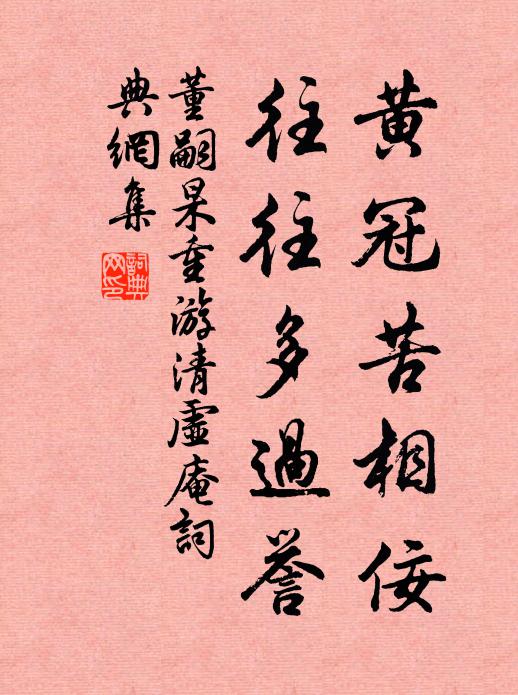 黄冠苦相佞
往往多過誉
董嗣杲重游清虛庵詞
典網集
詞典網印